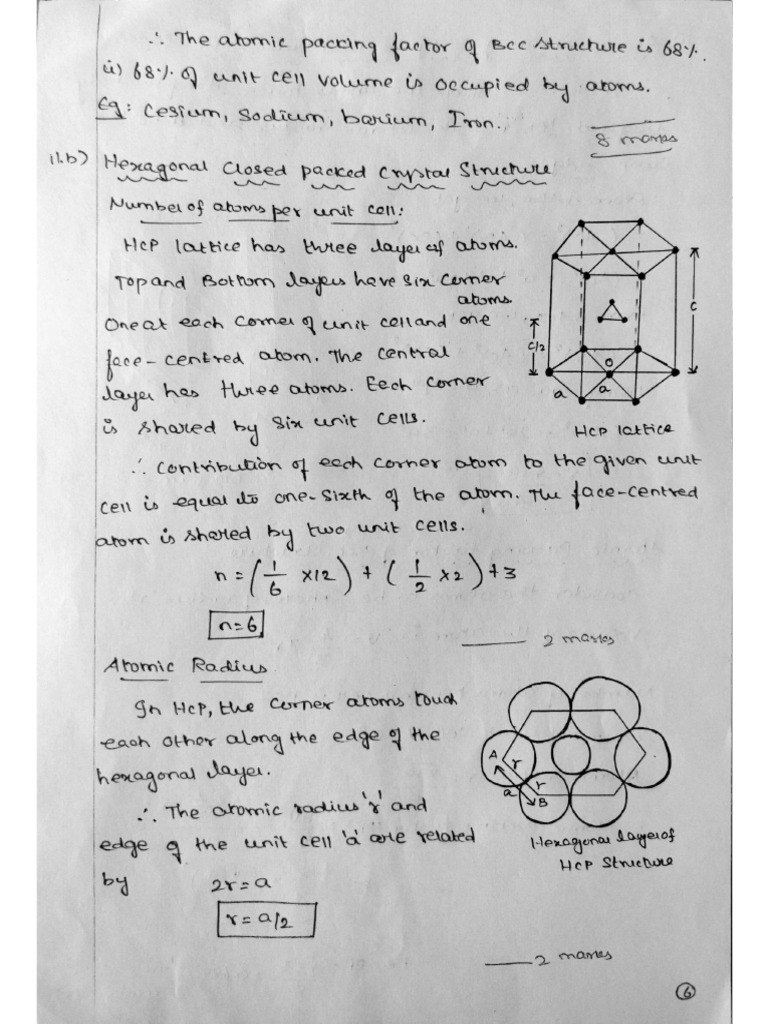 ∴ The atomic packing factor of BCC Structure is 68%.
ii) 68% of unit cell volume is occupied by atoms.
Eg: Cesium, Sodium, barium, Iron.
8 marks
11.b) Hexagonal Closed packed Crystal Structure
Number of atoms per unit cell:
HCP lattice has three layer of atoms.
Top and Bottom layers have six corner
atoms.
One at each corner of unit cell and one
face-centred atom. The central
layer has three atoms. Each corner
is shared by six unit cells.
C
C/2
O
a
a
HCP lattice
∴ Contribution of each corner atom to the given unit
cell is equal to one-sixth of the atom. The face-centred
atom is shared by two unit cells.
n = (1/6 ×12) + (1/2 ×2) + 3
n=6
2 marks
Atomic Radius
In HCP, the corner atoms touch
each other along the edge of the
hexagonal layer.
∴ The atomic radius 'r' and
edge of the unit cell 'a' are related
by 2r=a
r=a/2
A
r
r
a
B
Hexagonal layer of
HCP Structure
2 marks
6